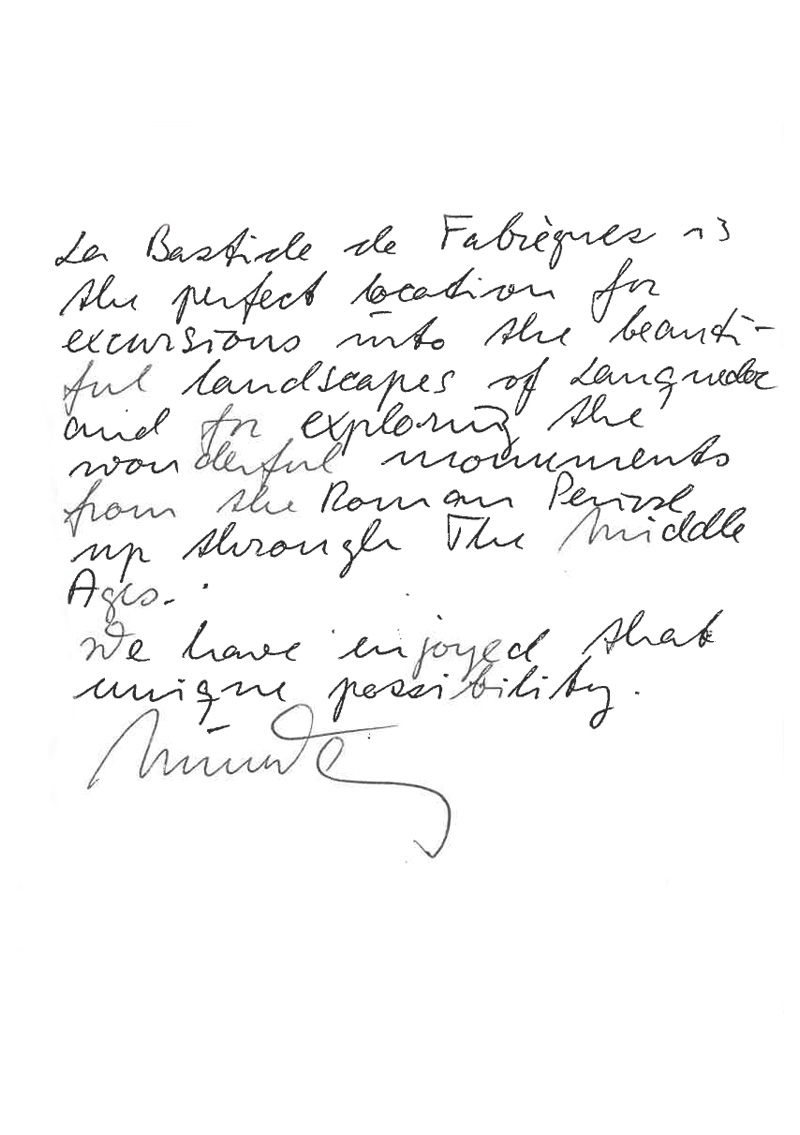 La Bastide de Fabrègues is
the perfect location for
excursions into the beauti-
ful landscapes of Languedoc
and for exploring the
wonderful monuments
from the Roman Period
up through The Middle
Ages.
We have enjoyed that
unique possibility.